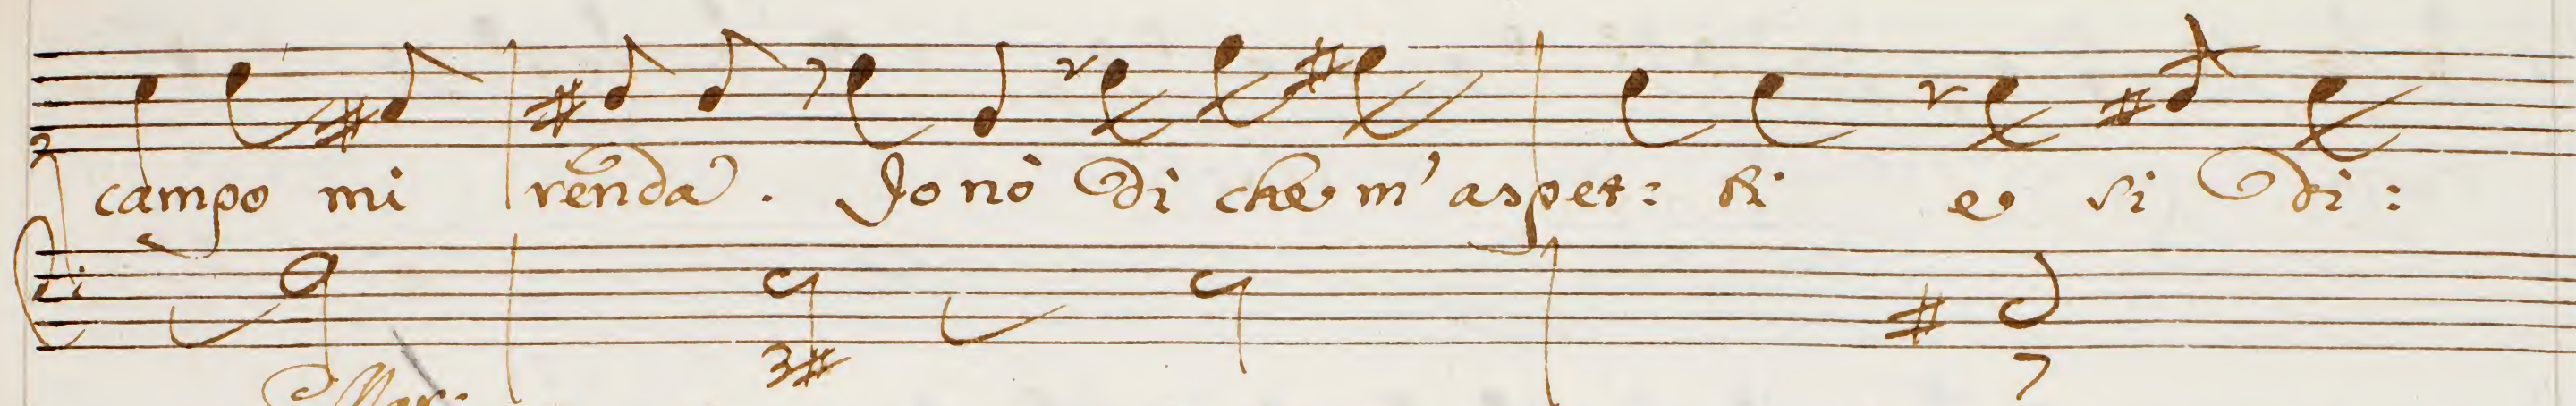 campo mi renda. Io nò di che m'aspet: ti e si di:
3#
7
Mar: